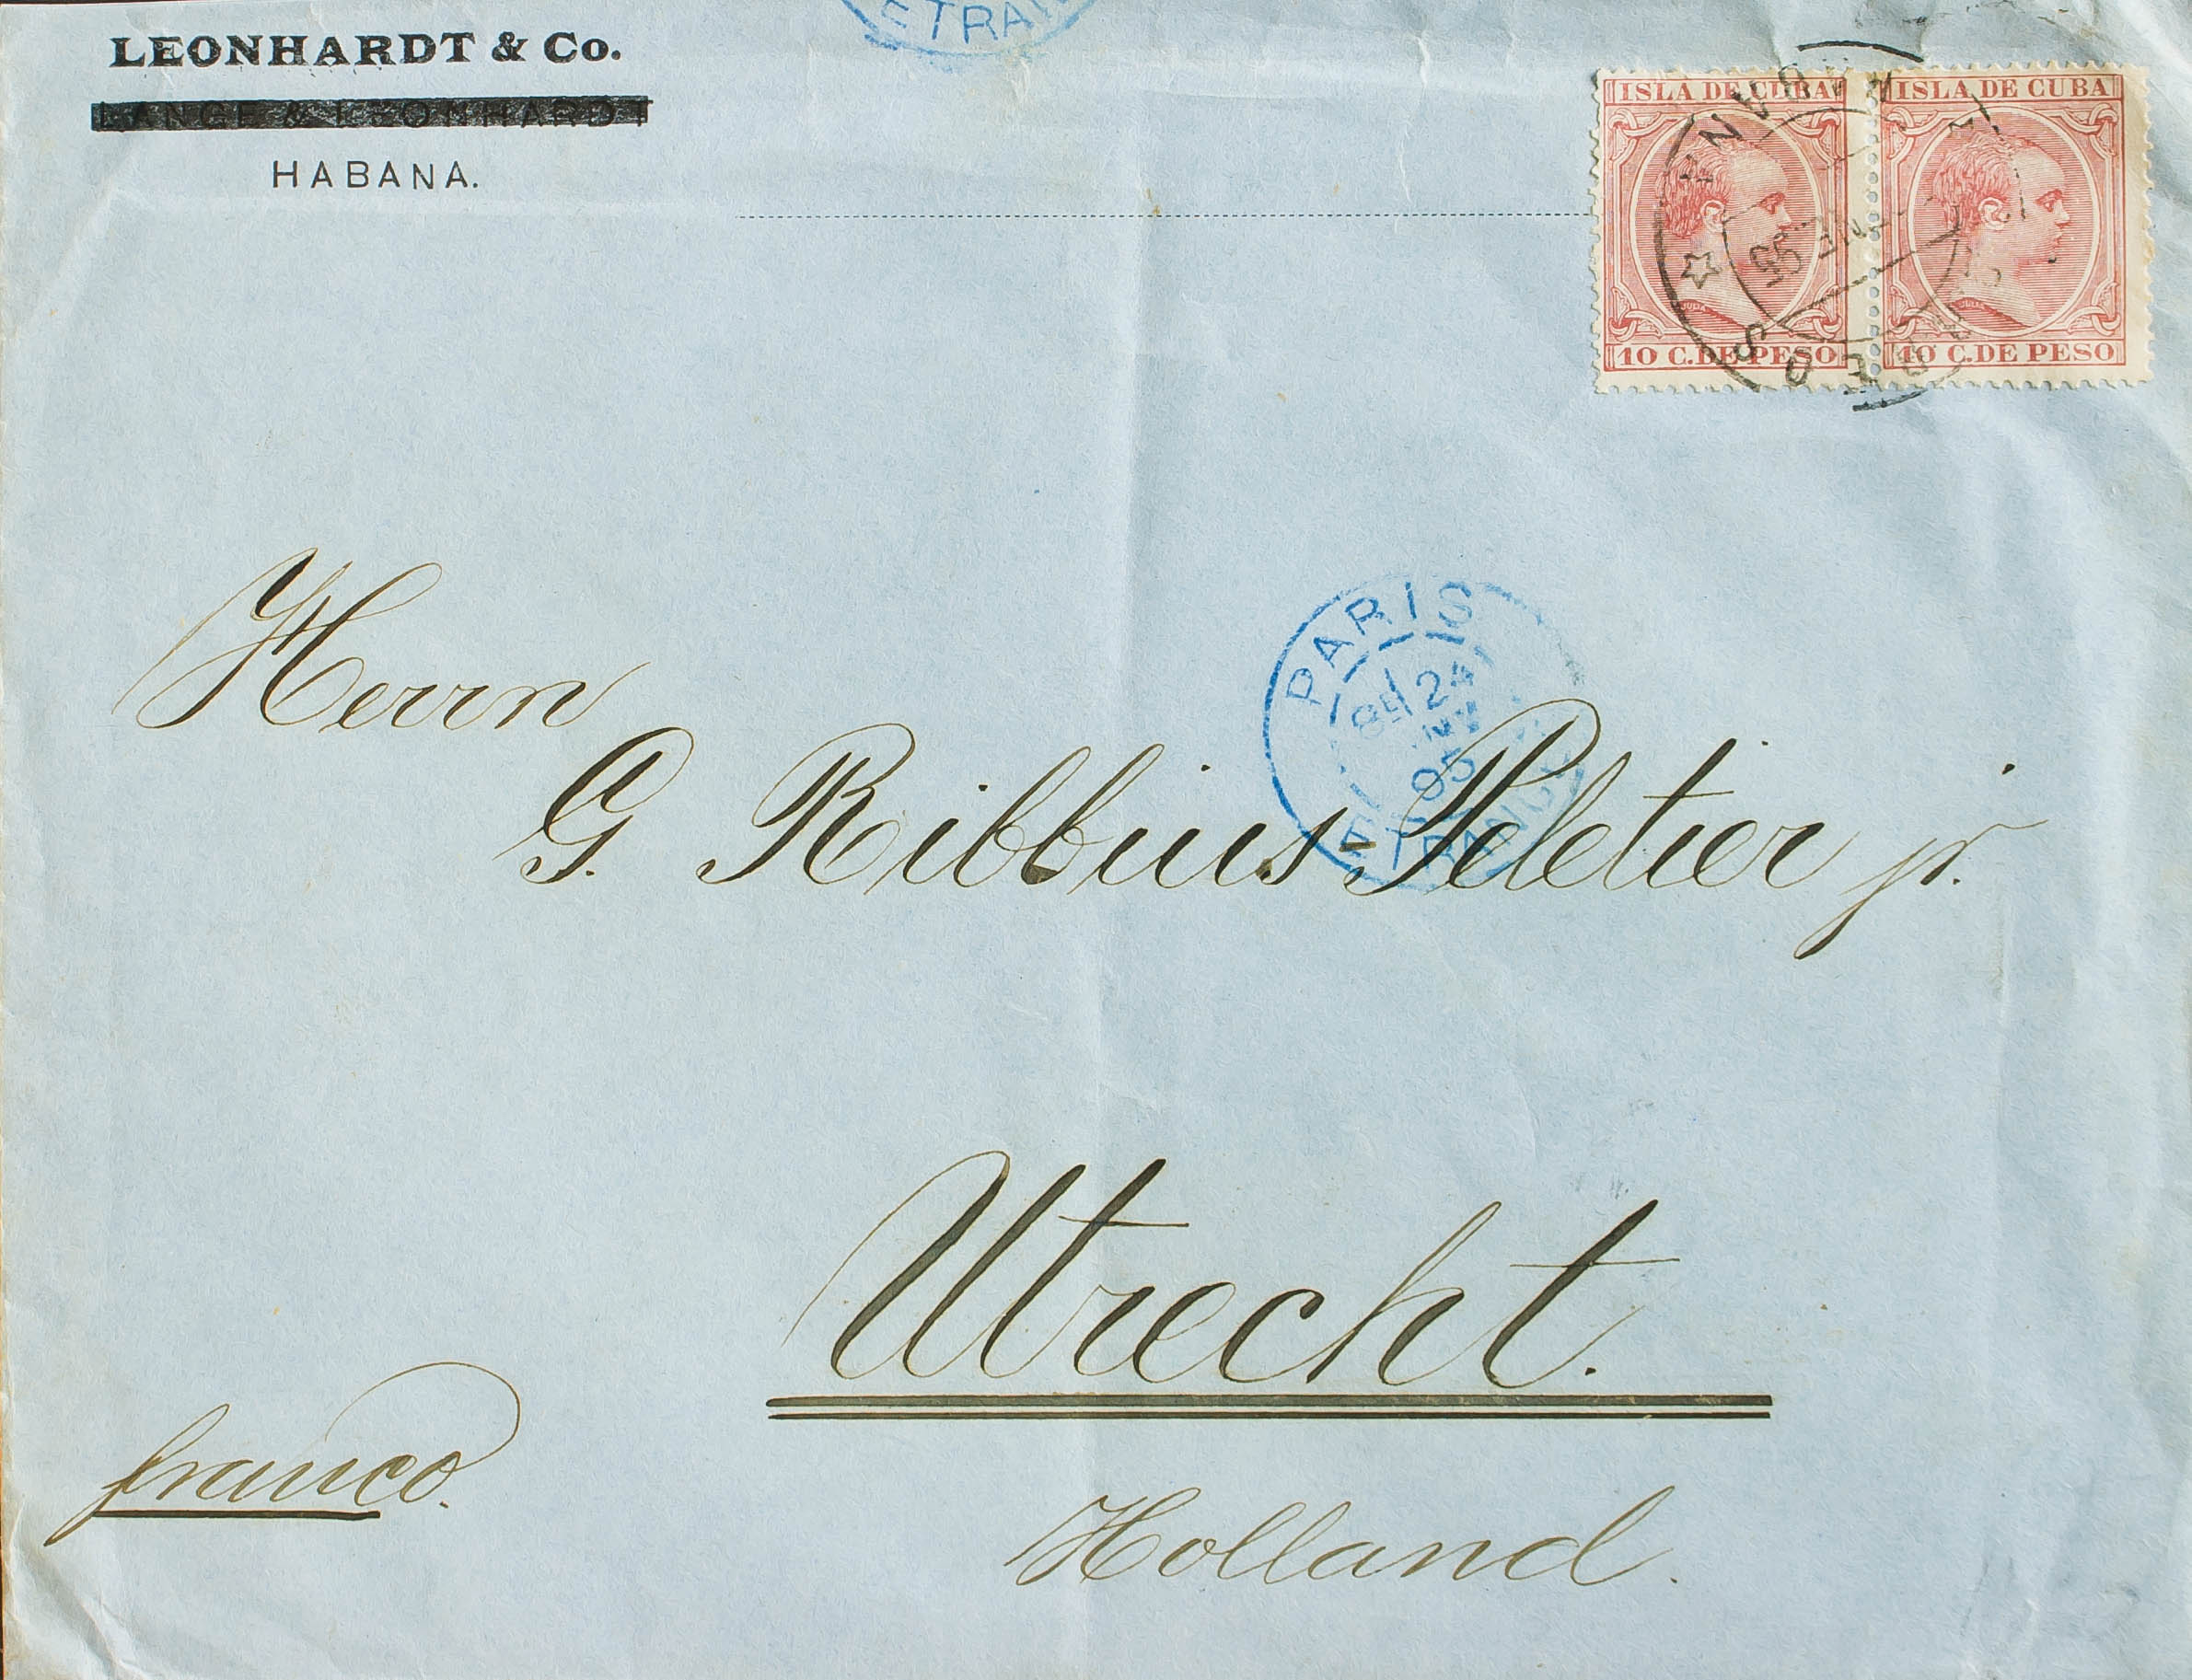 LEONHARDT & Co.
LANGE & LEONHARDT
HABANA.
ETRAN
ISLA DE CUBA ISLA DE CUBA
10 C. DE PESO 10 C. DE PESO
HABANA
95
PARIS
24
95
ETRANGER
Herrn
G. Ribbius-Peletier jr.
Utrecht.
Holland.
franco.